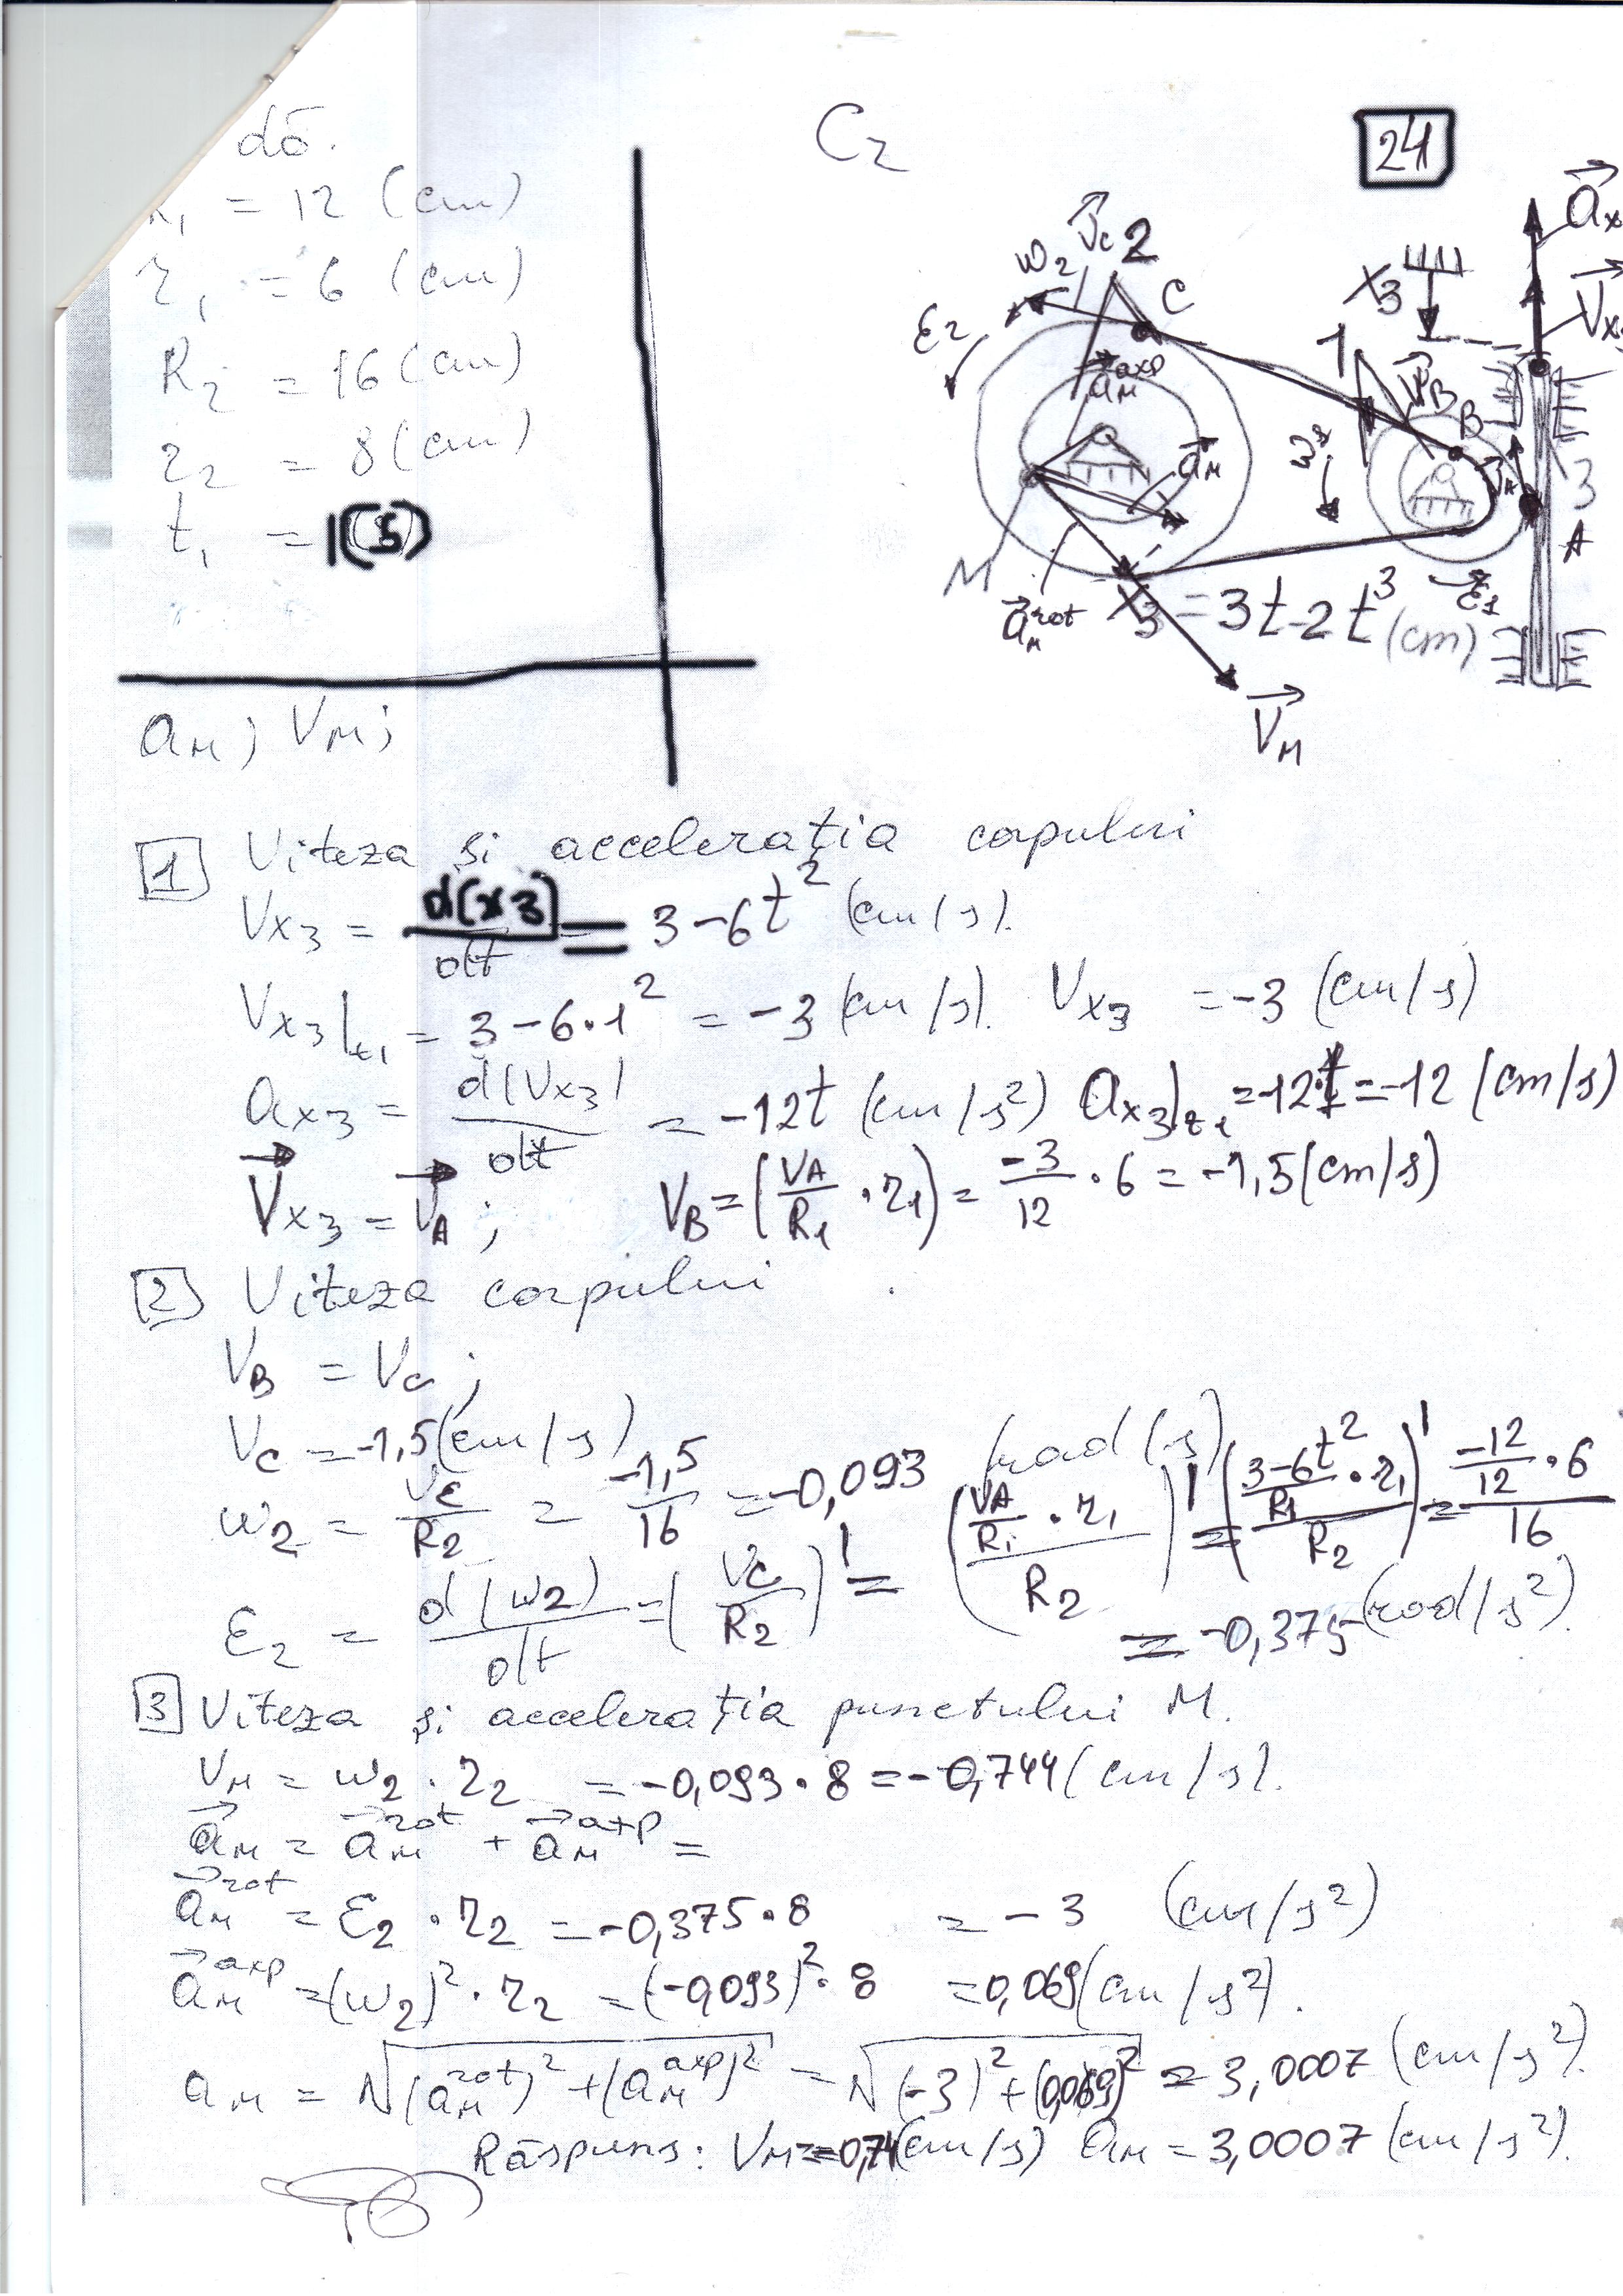 dō.
R₁ = 12 (cm)
r₁ = 6 (cm)
R₂ = 16 (cm)
r₂ = 8 (cm)
t₁ = 1(s)
aM; VM;
C2
24
ax
Vx
X3
ε2
ω2
Vc
2
C
1
VB
B
aM axp
aM
ω1
3
A
M
aM rot
ε1
X3 = 3t-2t³ (cm)
VM
1 Viteza și accelerația corpului
Vx3 = d(x3)/dt = 3-6t² (cm/s).
Vx3|t1 = 3-6·1² = -3 (cm/s). Vx3 = -3 (cm/s)
ax3 = d(Vx3)/dt = -12t (cm/s²) ax3|t1 = -12·1 = -12 (cm/s)
Vx3 = VA; VB = (VA/R1 · r1) = -3/12 · 6 = -1,5 (cm/s)
2 Viteza corpului
VB = Vc;
Vc = -1,5 (cm/s)
ω2 = Vc/R2 = -1,5/16 = -0,093 (rad/s)
ε2 = d(ω2)/dt = (Vc/R2)' = ((VA/R1 · r1)/R2)' = ((3-6t²/R1 · r1)/R2)' = (-12/12 · 6)/16
= -0,375 (rad/s²).
3 Viteza și accelerația punctului M.
VM = ω2 · r2 = -0,093 · 8 = -0,744 (cm/s).
aM = aM rot + aM axp =
aM rot = ε2 · r2 = -0,375 · 8 = -3 (cm/s²)
aM axp = (ω2)² · r2 = (-0,093)² · 8 = 0,069 (cm/s²).
aM = √((aM rot)² + (aM axp)²) = √((-3)² + (0,069)²) = 3,0007 (cm/s²).
Răspuns: VM = -0,74 (cm/s) aM = 3,0007 (cm/s²).